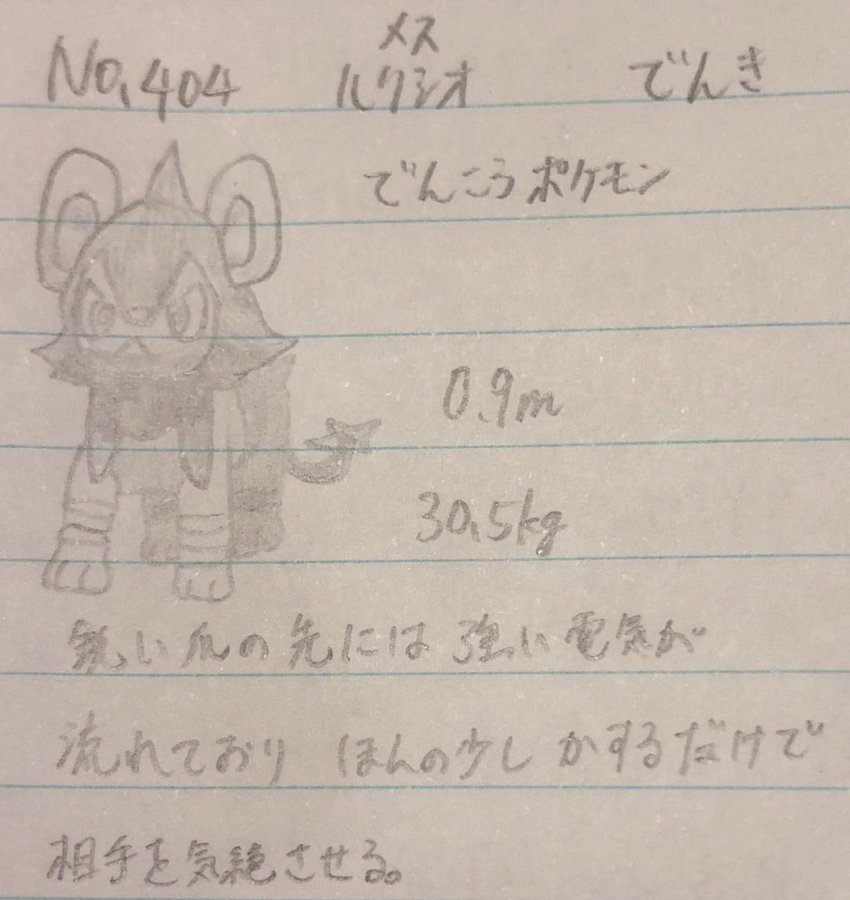 メス
No.404 ルクシオ でんき
でんこうポケモン
0.9m
30.5kg
鋭い爪の先には強い電気が
流れており ほんの少しかするだけで
相手を気絶させる。